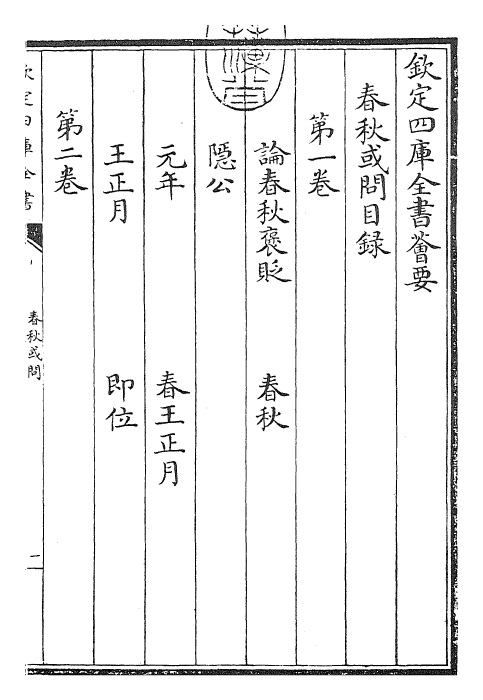 欽定四庫全書薈要
春秋或問目録
第一卷
論春秋褒貶　春秋
隱公
元年　春王正月
王正月　即位
第二卷
欽定四庫全書
春秋或問
二